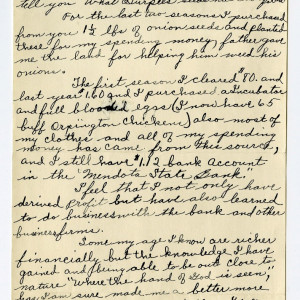 tell you what
For the last two seasons I purchased
from you 1½ lbs of onion seeds and planted
these for my spending money, father gave
me the land for helping him weed his
onions.
The first season I cleared $80. and
last year 160 and I purchased a Incubator
and full blooded eggs (I now have 65
buff Orpington Chickens) also most of
my clothes and all of my spending
money has came from this source,
and I still have $112 bank Account
in the "Mendota State Bank"
I feel that I not only have
derived profit but have also learned
to do business with the bank and other
business firms.
Some my age I know are richer
financially but the knowledge I have
gained and being able to be own close to
nature "Where the hand of God is seen",
has I am sure made me a better more